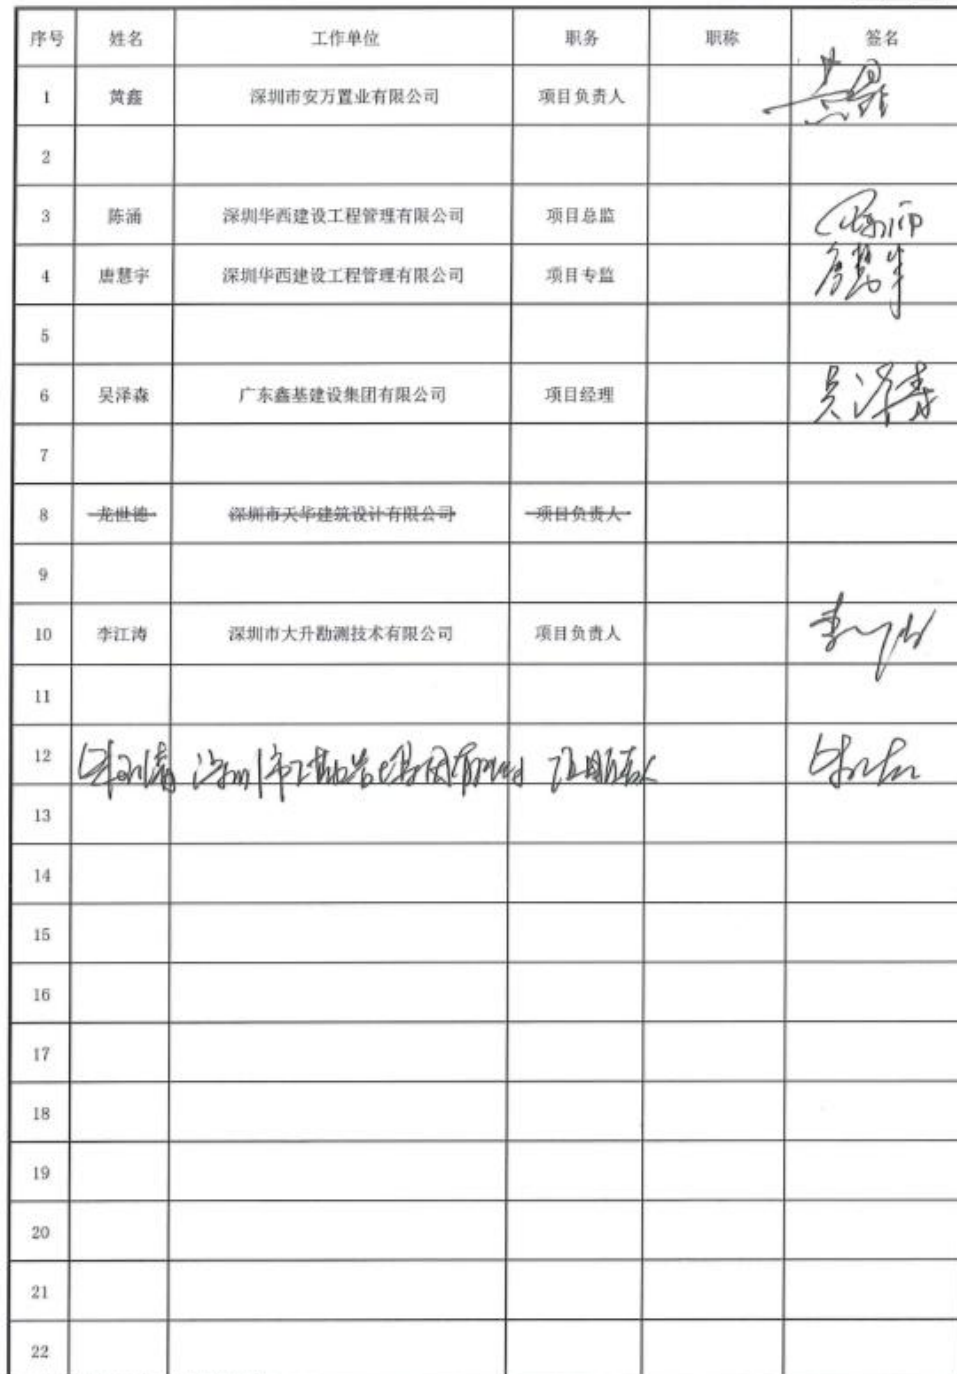 序号 姓名 工作单位 职务 职称 签名
1 黄鑫 深圳市安万置业有限公司 项目负责人 黄鑫
2
3 陈涌 深圳华西建设工程管理有限公司 项目总监 陈涌
4 唐慧宇 深圳华西建设工程管理有限公司 项目专监
5
6 吴泽森 广东鑫基建设集团有限公司 项目经理 吴泽森
7
8 龙世德 深圳市天华建筑设计有限公司 项目负责人
9
10 李江涛 深圳市大升勘测技术有限公司 项目负责人
11
12 深圳市
13
14
15
16
17
18
19
20
21
22